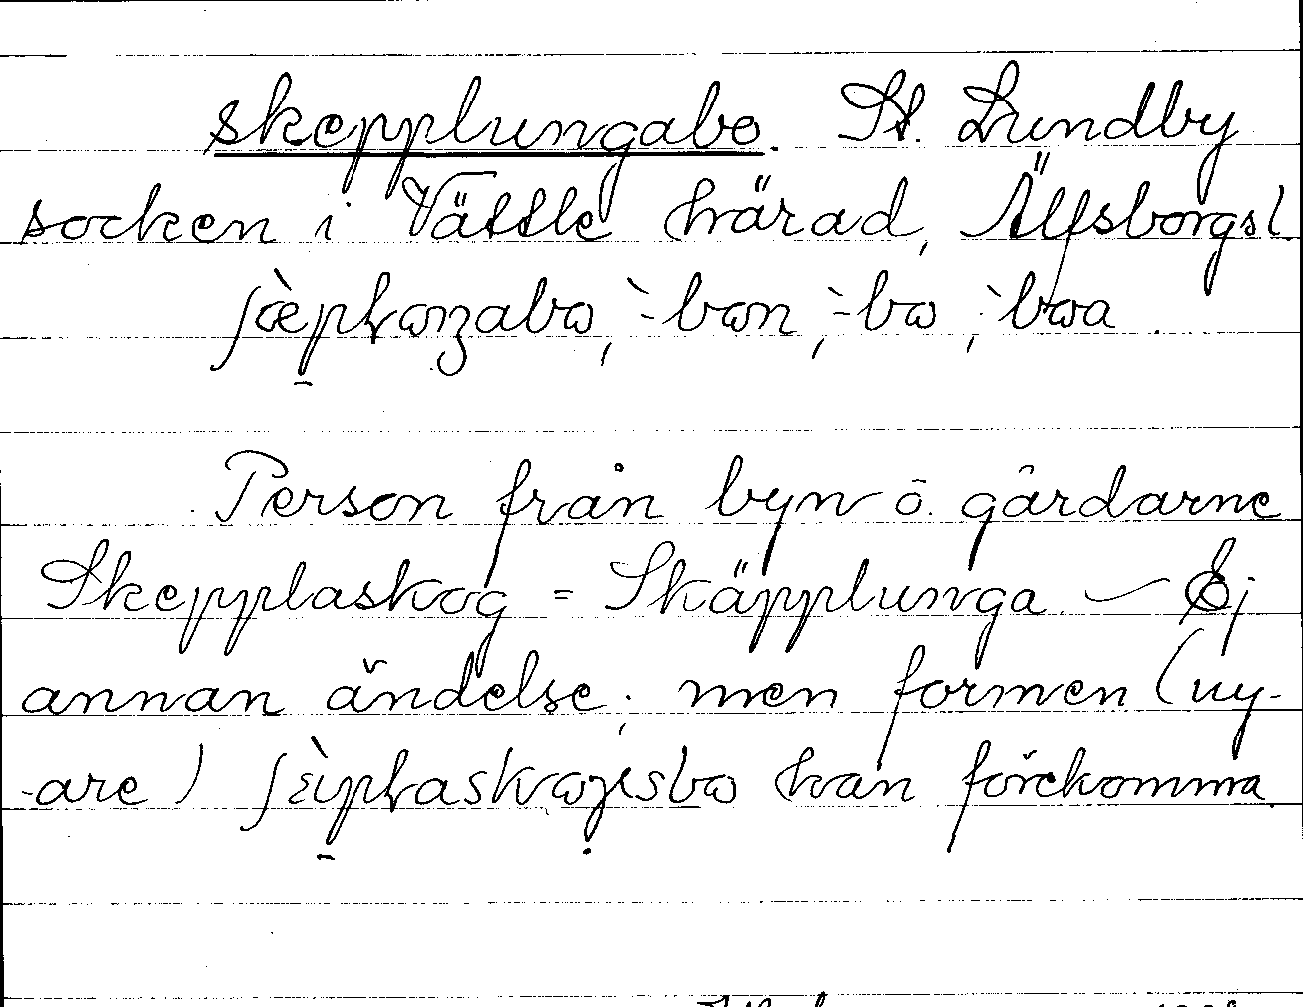 skepplungabo. St. Lundby
socken i Vättle härad, Älfsborgsl.
Person från byn o. gårdarne
Skepplaskog = Skäpplunga – Ej
annan ändelse; men formen (ny-
-are) kan förekomma.